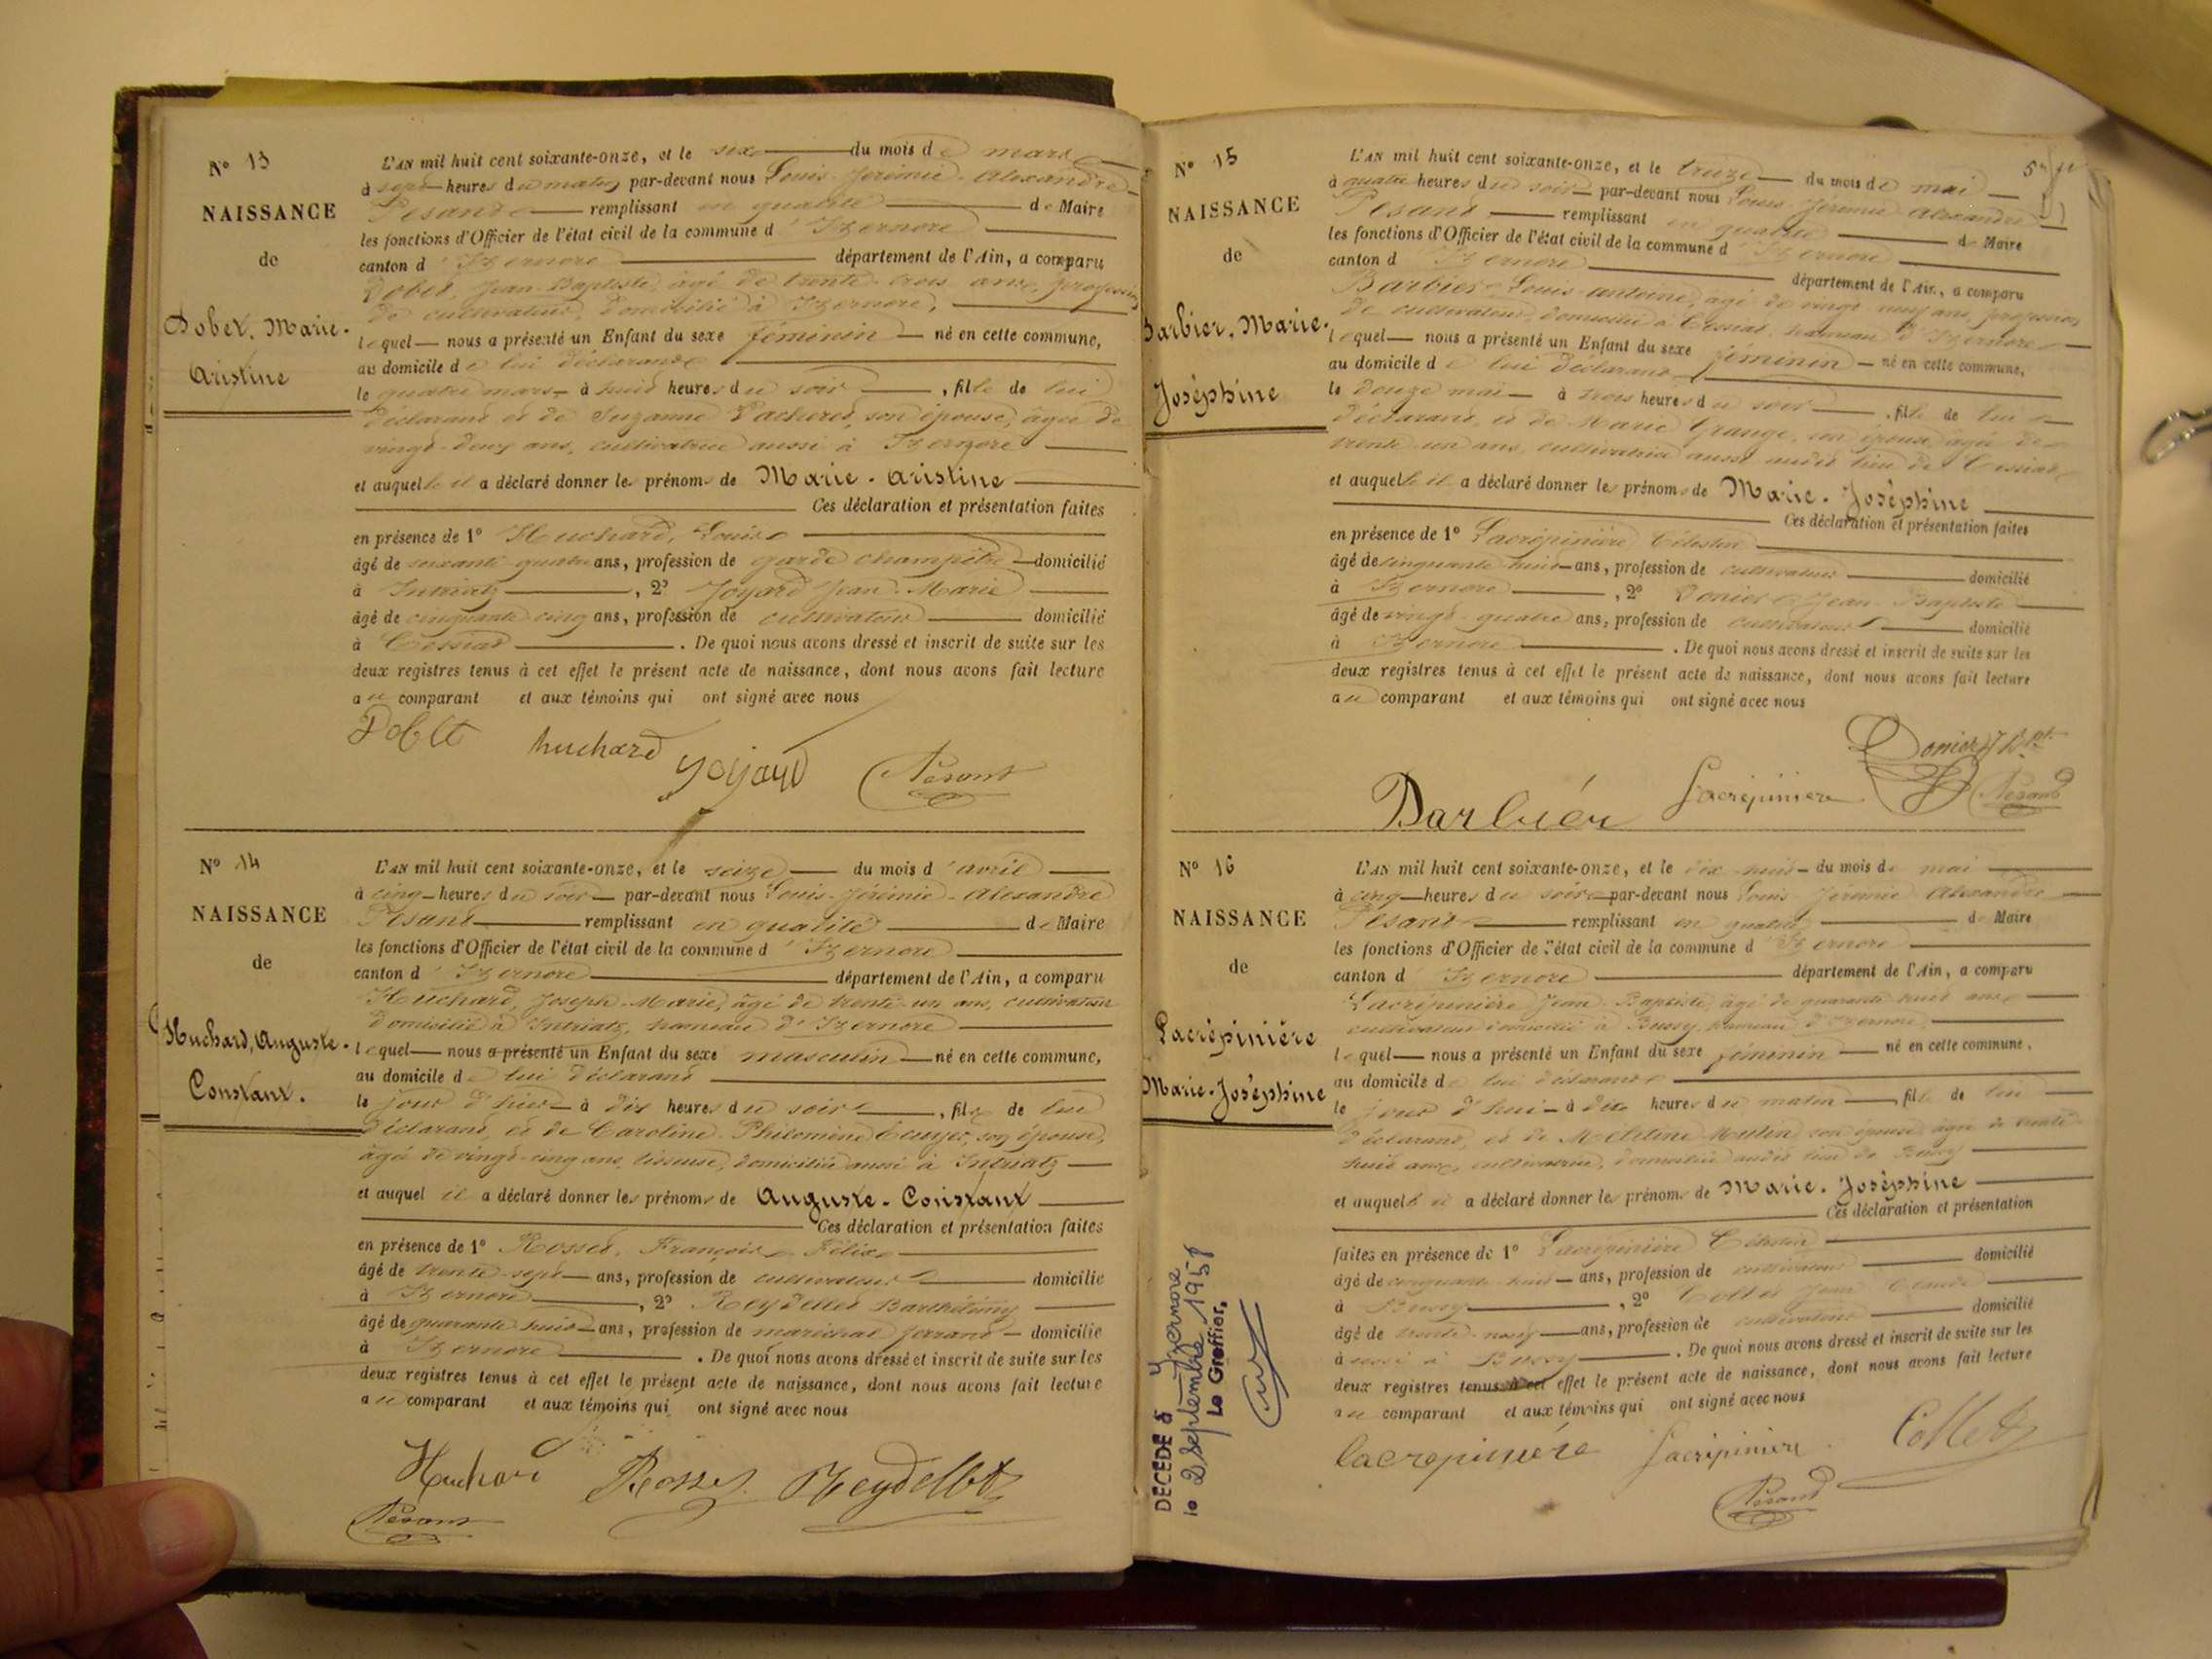 N° 13
NAISSANCE
de
Dobet, Marie-
Aristine
L'AN mil huit cent soixante-onze, et le six du mois de mars
à sept heures du matin par-devant nous Louis-Jérémie-Alexandre
Pésant remplissant en qualité de Maire
les fonctions d'Officier de l'état civil de la commune d'Izernore
canton d'Izernore département de l'Ain, a comparu
Dobet, Jean-Baptiste, âgé de trente-trois ans, profession
de cultivateur, domicilié à Izernore,
lequel nous a présenté un Enfant du sexe féminin né en cette commune,
au domicile de lui déclarant
le quatre mars à huit heures du soir, fille de lui
déclarant et de Suzanne son épouse, âgée de
vingt-deux ans, cultivatrice aussi à Izernore
et auquelle il a déclaré donner les prénoms de Marie-Aristine
Ces déclaration et présentation faites
en présence de 1° Huchard, Louis
âgé de soixante-quatre ans, profession de garde champêtre domicilié
à Intriatz, 2° Joyard Jean-Marie
âgé de cinquante cinq ans, profession de cultivateur domicilié
à Cessiat. De quoi nous avons dressé et inscrit de suite sur les
deux registres tenus à cet effet le présent acte de naissance, dont nous avons fait lecture
au comparant et aux témoins qui ont signé avec nous
Dobet huchard Joyard Pésant
N° 14
NAISSANCE
de
Huchard, Auguste-
Constant.
L'AN mil huit cent soixante-onze, et le seize du mois d'avril
à cinq heures du soir par-devant nous Louis-Jérémie-Alexandre
Pésant remplissant en qualité de Maire
les fonctions d'Officier de l'état civil de la commune d'Izernore
canton d'Izernore département de l'Ain, a comparu
Huchard, Joseph-Marie, âgé de trente-un ans, cultivateur
domicilié à Intriatz, hameau d'Izernore
lequel nous a présenté un Enfant du sexe masculin né en cette commune,
au domicile de lui déclarant
le jour d'hier à dix heures du soir, fils de lui
déclarant, et de Caroline-Philomène son épouse,
âgée de vingt-cinq ans, tisseuse, domiciliée aussi à Intriatz
et auquel il a déclaré donner les prénoms de Auguste-Constant
Ces déclaration et présentation faites
en présence de 1° Rosset, François Félix
âgé de trente-sept ans, profession de cultivateur domicilié
à Izernore, 2° Reydellet Barthélémy
âgé de quarante huit ans, profession de maréchal ferrant domicilié
à Izernore. De quoi nous avons dressé et inscrit de suite sur les
deux registres tenus à cet effet le présent acte de naissance, dont nous avons fait lecture
au comparant et aux témoins qui ont signé avec nous
Huchard Rosset Reydellet
Pésant
N° 15
NAISSANCE
de
Barbier, Marie-
Joséphine
L'AN mil huit cent soixante-onze, et le treize du mois de mai
à quatre heures du soir par-devant nous Louis-Jérémie Alexandre
Pésant remplissant en qualité de Maire
les fonctions d'Officier de l'état civil de la commune d'Izernore
canton d'Izernore département de l'Ain, a comparu
Barbier Louis-Antoine, âgé de vingt neuf ans, profession
de cultivateur, domicilié à Cessiat, hameau d'Izernore
lequel nous a présenté un Enfant du sexe féminin né en cette commune,
au domicile de lui déclarant
le douze mai à trois heures du soir, fille de lui
déclarant, et de Marie Grange, son épouse, âgée de
trente un ans, cultivatrice aussi audit lieu de Cessiat
et auquelle il a déclaré donner les prénoms de Marie-Joséphine
Ces déclaration et présentation faites
en présence de 1° Lacrépinière Célestin
âgé de cinquante huit ans, profession de cultivateur domicilié
à Izernore, 2° Donier Jean-Baptiste
âgé de vingt-quatre ans, profession de cultivateur domicilié
à Izernore. De quoi nous avons dressé et inscrit de suite sur les
deux registres tenus à cet effet le présent acte de naissance, dont nous avons fait lecture
au comparant et aux témoins qui ont signé avec nous
Donier
Barbier Lacrepiniere Pésant
N° 16
NAISSANCE
de
Lacrépinière
Marie-Joséphine
L'AN mil huit cent soixante-onze, et le dix huit du mois de mai
à cinq heures du soir par-devant nous Louis Jérémie Alexandre
Pésant remplissant en qualité de Maire
les fonctions d'Officier de l'état civil de la commune d'Izernore
canton d'Izernore département de l'Ain, a comparu
Lacrépinière Jean-Baptiste, âgé de quarante huit ans
cultivateur domicilié à Bussy, hameau d'Izernore
lequel nous a présenté un Enfant du sexe féminin né en cette commune,
au domicile de lui déclarant
le jour d'hui à dix heures du matin, fille de lui
déclarant, et de son épouse âgée de trente
huit ans, cultivatrice, domiciliée audit lieu de Bussy
et auquelle il a déclaré donner les prénoms de Marie-Joséphine
Ces déclaration et présentation
faites en présence de 1° Lacrépinière Célestin
âgé de cinquante huit ans, profession de cultivateur domicilié
à Bussy, 2° Collet Jean Claude
âgé de trente-neuf ans, profession de cultivateur domicilié
à aussi à Bussy. De quoi nous avons dressé et inscrit de suite sur les
deux registres tenus à cet effet le présent acte de naissance, dont nous avons fait lecture
au comparant et aux témoins qui ont signé avec nous
lacrepiniére Lacrepiniere Collet
Pésant
DÉCÉDÉ à Izernore
le 2 Septembre 1958
Le Greffier,